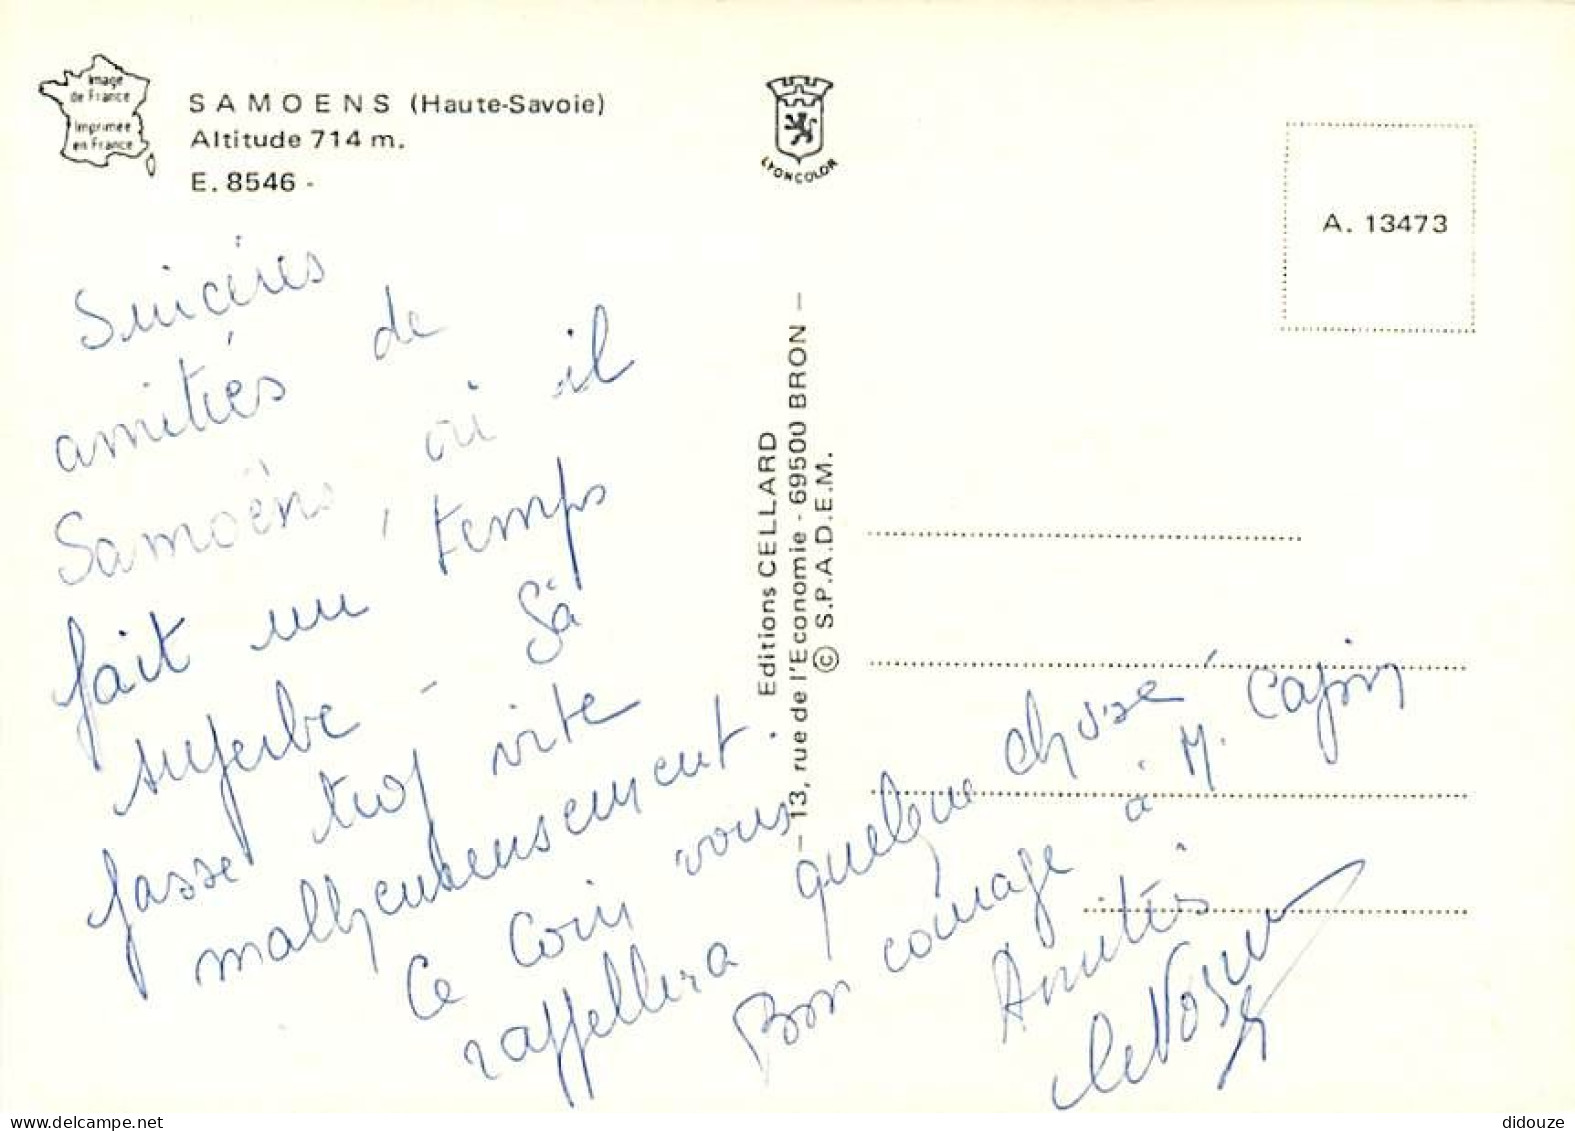 Image
de France
Imprimée
en France
SAMOENS (Haute-Savoie)
Altitude 714 m.
E. 8546 -
LYONCOLOR
A. 13473
Editions CELLARD
— 13, rue de l'Economie - 69500 BRON —
© S.P.A.D.E.M.
Sincères
amitiés de
Samoëns, où il
fait un temps
superbe - Sà
passe trop vite
malheureusement.
Ce Coin vous
rappellera quelque chose
Bon courage à M. Capin
Amitiés
didouze